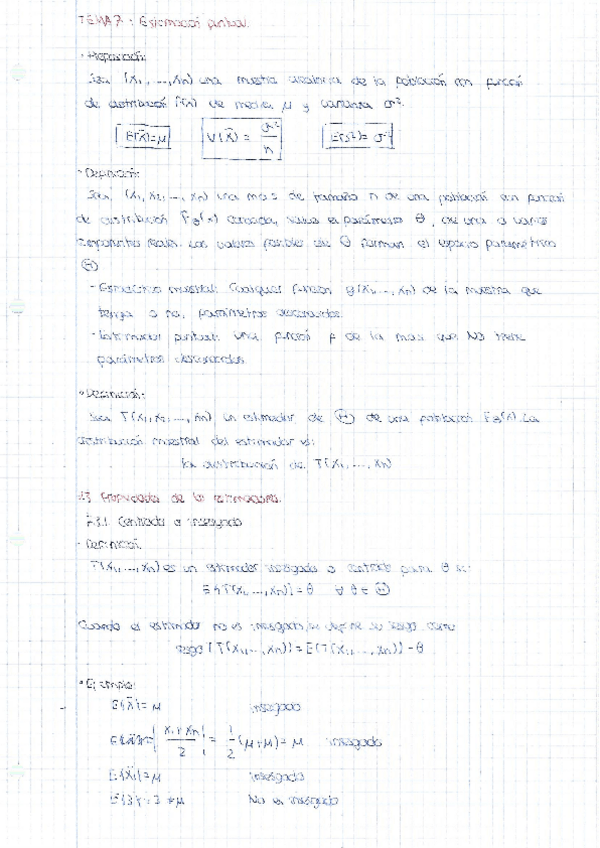 TEMA 7: Estimación puntual.
· Proposición:
Sea (X₁, ..., Xn) una muestra aleatoria de la población con función
de distribución F(x) de media μ y varianza σ².
E(X̄)=μ V(X̄) = σ²/n E(S²)= σ²
· Definición:
Sea (X₁, X₂, ..., Xn) una m.a.s de tamaño n de una población con función
de distribución Fθ(x) conocida, salvo el parámetro θ, de una o varias
componentes reales. Los valores posibles de θ forman el espacio paramétrico
Θ
- Estadístico muestral: Cualquier función g(X₁, ..., Xn) de la muestra que
tenga o no, parámetros desconocidos.
- Estimador puntual: una función f de la m.a.s que NO tiene
parámetros desconocidos.
· Definición:
Sea T(X₁, X₂, ..., Xn) un estimador de Θ de una población Fθ(x). La
distribución muestral del estimador es:
la distribución de T(X₁, ..., Xn)
7.3 Propiedades de los estimadores.
7.3.1 Centrado o insesgado
· Definición:
T(X₁, ..., Xn) es un estimador insesgado o centrado para θ si:
E{T(X₁, ..., Xn)} = θ ∀ θ ∈ Θ
Cuando el estimador no es insesgado, se define su sesgo como
sesgo[T(X₁, ..., Xn)] = E(T(X₁, ..., Xn)) - θ
· Ejemplo:
E{X̄} = μ insesgado
(X₁+Xn)/2 = 1/2 (μ+μ) = μ insesgado
E{X₁} = μ insesgado
E{3} = 3 ≠ μ No es insesgado